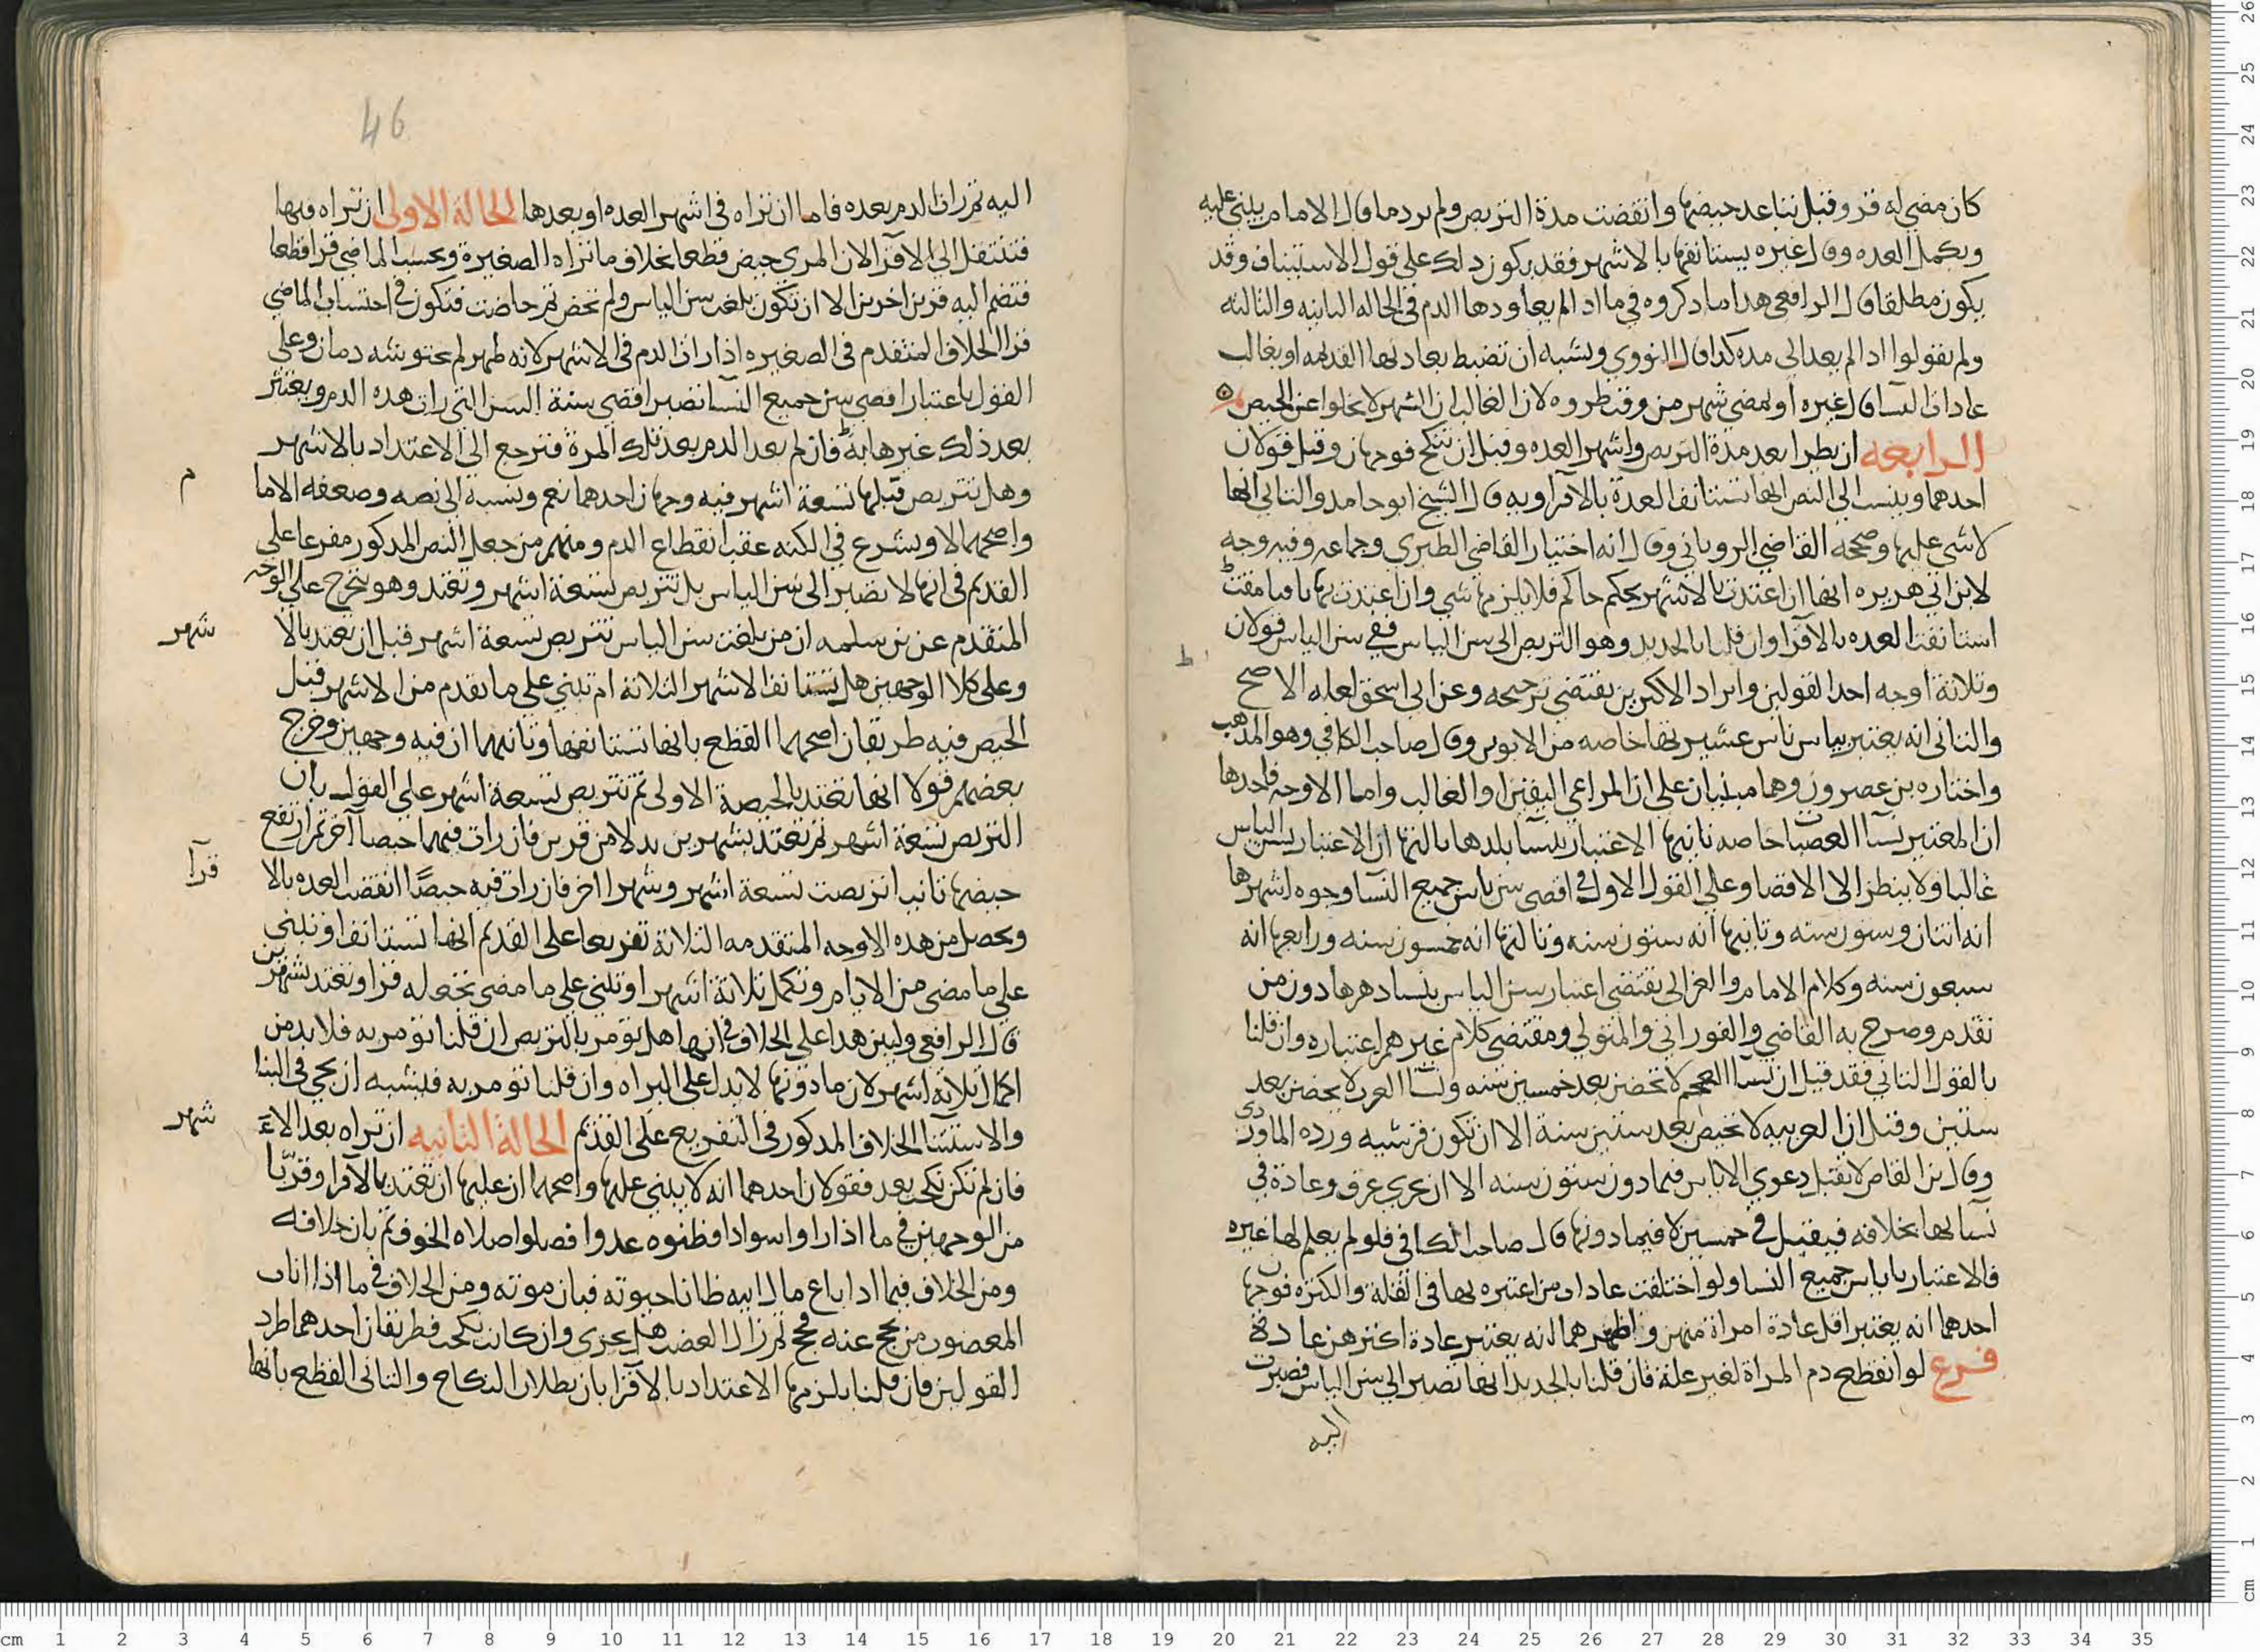 كان مضى له قرو وقيل بناعد حيضها وانقضت مدة التربص ولم يرد دما قال الامام يبنى عليه
ويكمل العده وقال غيره يستانفها بالاشهر فقد يكون ذلك على قول الاستيناف وقد
يكون مطلقا قال الرافعي هذا ما ذكروه في ما اذا لم يعاودها الدم في الحاله الثانيه والثالثه
ولم يقولوا اذا لم يعد الى مده كذا قال النووي ويشبه ان تضبط بعادتها القديمه او بغالب
عادات النسا قال غيره او بمضى شهر من وقت طروه لان الغالب ان الشهر لا يخلوا عن الحيض
الرابعه ان يطرا بعد مدة التربص واشهر العده وقبل ان تنكح فوجهان وقيل قولان
احدهما وينسب الى النص انها تستانف العدة بالاقرا وبه قال الشيخ ابو حامد والثاني انها
لا شي عليها وصححه القاضي الروياني وقال انه اختيار القاضي الطبري وجماعه وفيه وجه
لابن ابي هريره انها ان اعتدت بالاشهر بحكم حاكم فلا يلزمها شي وان اعتدت بها بافتا مفت
استانفت العده بالاقرا وان قلنا بالجديد وهو التربص الى سن الياس ففي سن الياس قولان
وثلاثة اوجه احد القولين وايراد الاكثرين يقتضي ترجيحه وعن ابي اسحق لعله الاصح
والثاني انه يعتبر بياس نساء عشيرتها خاصه من الابوين وقال صاحب الكافي وهو المذهب
واختاره بن عصرون وهما مبنيان على ان المراعي اليقين او الغالب واما الاوجه فاحدها
ان المعتبر نسا العصبات خاصه ثانيها الاعتبار بنسا بلدها ثالثها ان الاعتبار بسن الياس
غالبا ولا ينظر الى الاقصا وعلى القول الاول في اقصى سن ياس جميع النسا وجوه اشهرها
انه اثنتان وستون سنه وثانيها انه ستون سنه وثالثها انه خمسون سنه ورابعها انه
سبعون سنه وكلام الامام والغزالي يقتضي اعتبار سن الياس بنسا دهرها دون من
تقدم وصرح به القاضي والفوراني والمتولي ومقتضى كلام غيرهم اعتباره وان قلنا
بالقول الثاني فقد قيل ان نسا العجم لا تحضن بعد خمسين سنه ونسا العرب لا يحضن بعد
ستين وقيل ان العربيه لا تحيض بعد ستين سنة الا ان تكون قرشيه ورده الماوردى
وقال بن القاص لا تقبل دعوى الاياس فيما دون ستون سنه الا ان جرى عرف وعادة في
نسائها بخلافه فيقبل في خمسين لا فيما دونها قال صاحب الكافي فلو لم يعلم لها غيره
فالاعتبار باياس جميع النسا ولو اختلفت عادات من اعتبره بها في القلة والكثره فوجهان
احدهما انه يعتبر اقل عادة امراة منهن واظهرهما انه يعتبر عادة اكثرهن عادة
فرع لو انقطع دم المراة لغير علة فان قلنا بالجديد انها تصبر الى سن الياس فصبرت
اليه
46
اليه ثم رات الدم بعده فاما ان تراه في اشهر العده او بعدها الحالة الاولى ان تراه فيها
فتنتقل الى الاقرا لان المرى حيض قطعا بخلاف ما تراه الصغيرة ويحسب الماضي قرا قطعا
فتضم اليه قرين اخرين الا ان تكون بلغت سن الياس ولم تحض ثم حاضت فتكون في احتساب الماضي
قرا الخلاف المتقدم في الصغيره اذا رات الدم في الاشهر لانه طهر لم يحتوشه دمان وعلى
القول باعتبار اقصى سن جميع النسا تصير اقصى سنة السن التي رات هذه الدم ويعتبر
بعد ذلك غيرها به فان لم يعد الدم بعد تلك المرة فترجع الى الاعتداد بالاشهر
وهل تتربص قبلها تسعة اشهر فيه وجهان احدهما نعم ونسبة الى نصه وضعفه الاما
م
واصحهما لا ويشرع في الكنه عقب انقطاع الدم ومنهم من جعل النص المذكور مفرعا على
القديم في انها لا تصبر الى سن الياس بل تتربص تسعة اشهر وتعتد وهو يخرج على الوجه
المتقدم عن بن سلمه ان من بلغت سن الياس تتربص تسعة اشهر قبل ان تعتد بالا
شهر
وعلى كلا الوجهين هل تستانف الاشهر الثلاثة ام تبني على ما تقدم من الاشهر قبل
الحيض فيه طريقان اصحهما القطع بانها تستانفها وثانيهما ان فيه وجهين وخرج
بعضهم قولا انها تعتد بالحيضة الاولى ثم تتربص تسعة اشهر على القول بان
التربص تسعة اشهر ثم تعتد بشهرين بدلا من قرين فان رات فيهما حيضا آخر ثم ارتفع
حيضها ثانيا تربصت تسعة اشهر وشهرا اخر فان رات فيه حيضًا انقضت العده بالا
قرآ
ويحصل من هذه الاوجه المتقدمه الثلاثة تفريعا على القديم انها تستانف او تبنى
على ما مضى من الايام وتكمل ثلاثة اشهر او تبنى على ما مضى بحعله قرا وتعتد بشهرين
قال الرافعي وليبن هذا على الخلاف في انها هل تؤمر بالتربص ان قلنا تؤمر به فلا بد من
اكمال ثلاثه اشهر لان ما دونها لا يدل على البراه وان قلنا تؤمر به فيشبه ان يجي في البنا
والاستيناف الخلاف المذكور في التفريع على القديم الحالة الثانيه ان تراه بعد الا
شهر
فان لم تكن نكحت بعد فقولان احدهما انه لا شي عليها واصحهما ان عليها ان تعتد بالاقرا وقربا
من الوجهين في ما اذا راوا سوادا فظنوه عدوا فصلوا صلاه الخوف ثم بان خلافه
ومن الخلاف فيما اذا باع مال ابيه ظانا حيوته فبان موته ومن الخلاف في ما اذا اناب
المعضوب من يحج عنه فحج ثم زال العضب هل يجزى وان كانت نكحت فطريقان احدهما طرد
القولين فان قلنا يلزمها الاعتداد بالاقرا بان بطلان النكاح والثاني القطع بانها